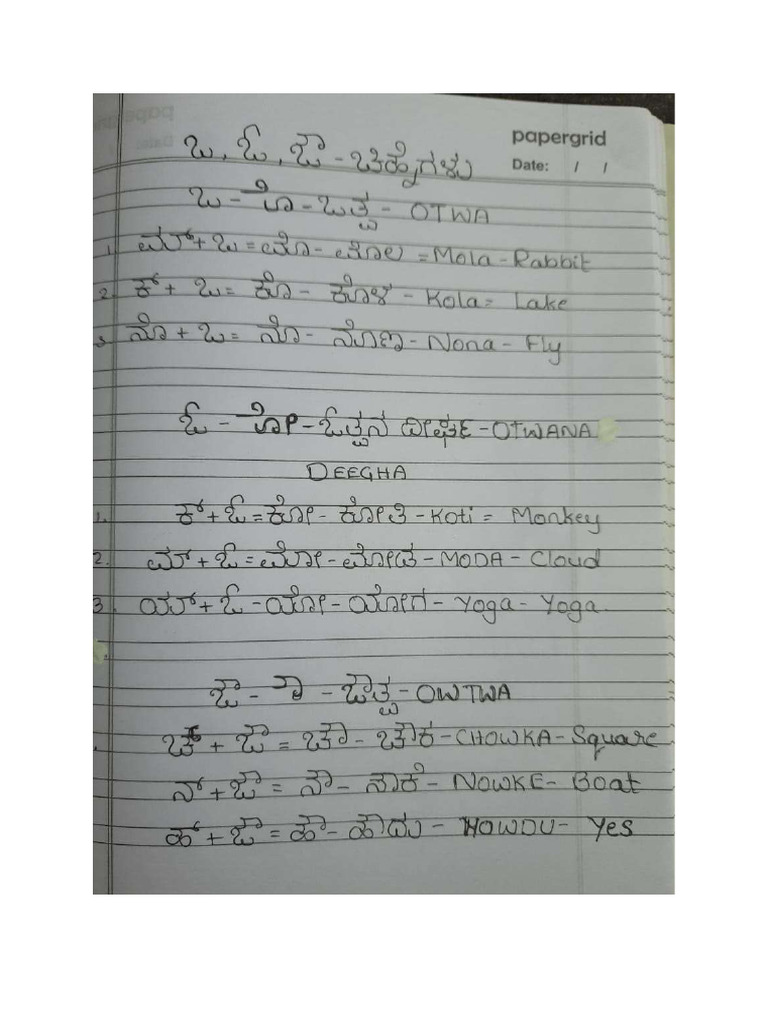 papergrid
Date: / /
ಒ, ಓ, ಔ - ಚಿಹ್ನೆಗಳು
ಒ - ೊ - ಒತ್ವ - OTWA
1. ಮ್ + ಒ = ಮೊ - ಮೊಲ = Mola - Rabbit
2. ಕ್ + ಒ = ಕೊ - ಕೊಳ - Kola = Lake
3. ನೊ + ಒ = ನೊ - ನೊಣ - Nona - Fly
ಓ - ೋ - ಓತ್ವನ ದೀರ್ಘ - OTWANA
DEEGHA
1. ಕ್ + ಓ = ಕೋ - ಕೋತಿ - Koti = Monkey
2. ಮ್ + ಓ = ಮೋ - ಮೋಡ - MODA - Cloud
3. ಯ್ + ಓ - ಯೋ - ಯೋಗ - Yoga - Yoga
ಔ - ೌ - ಔತ್ವ - OWTWA
ಚ್ + ಔ = ಚೌ - ಚೌಕ - CHOWKA - Square
ನ್ + ಔ = ನೌ - ನೌಕೆ - NOWKE - Boat
ಹ್ + ಔ = ಹೌ - ಹೌದು - HOWDU - Yes